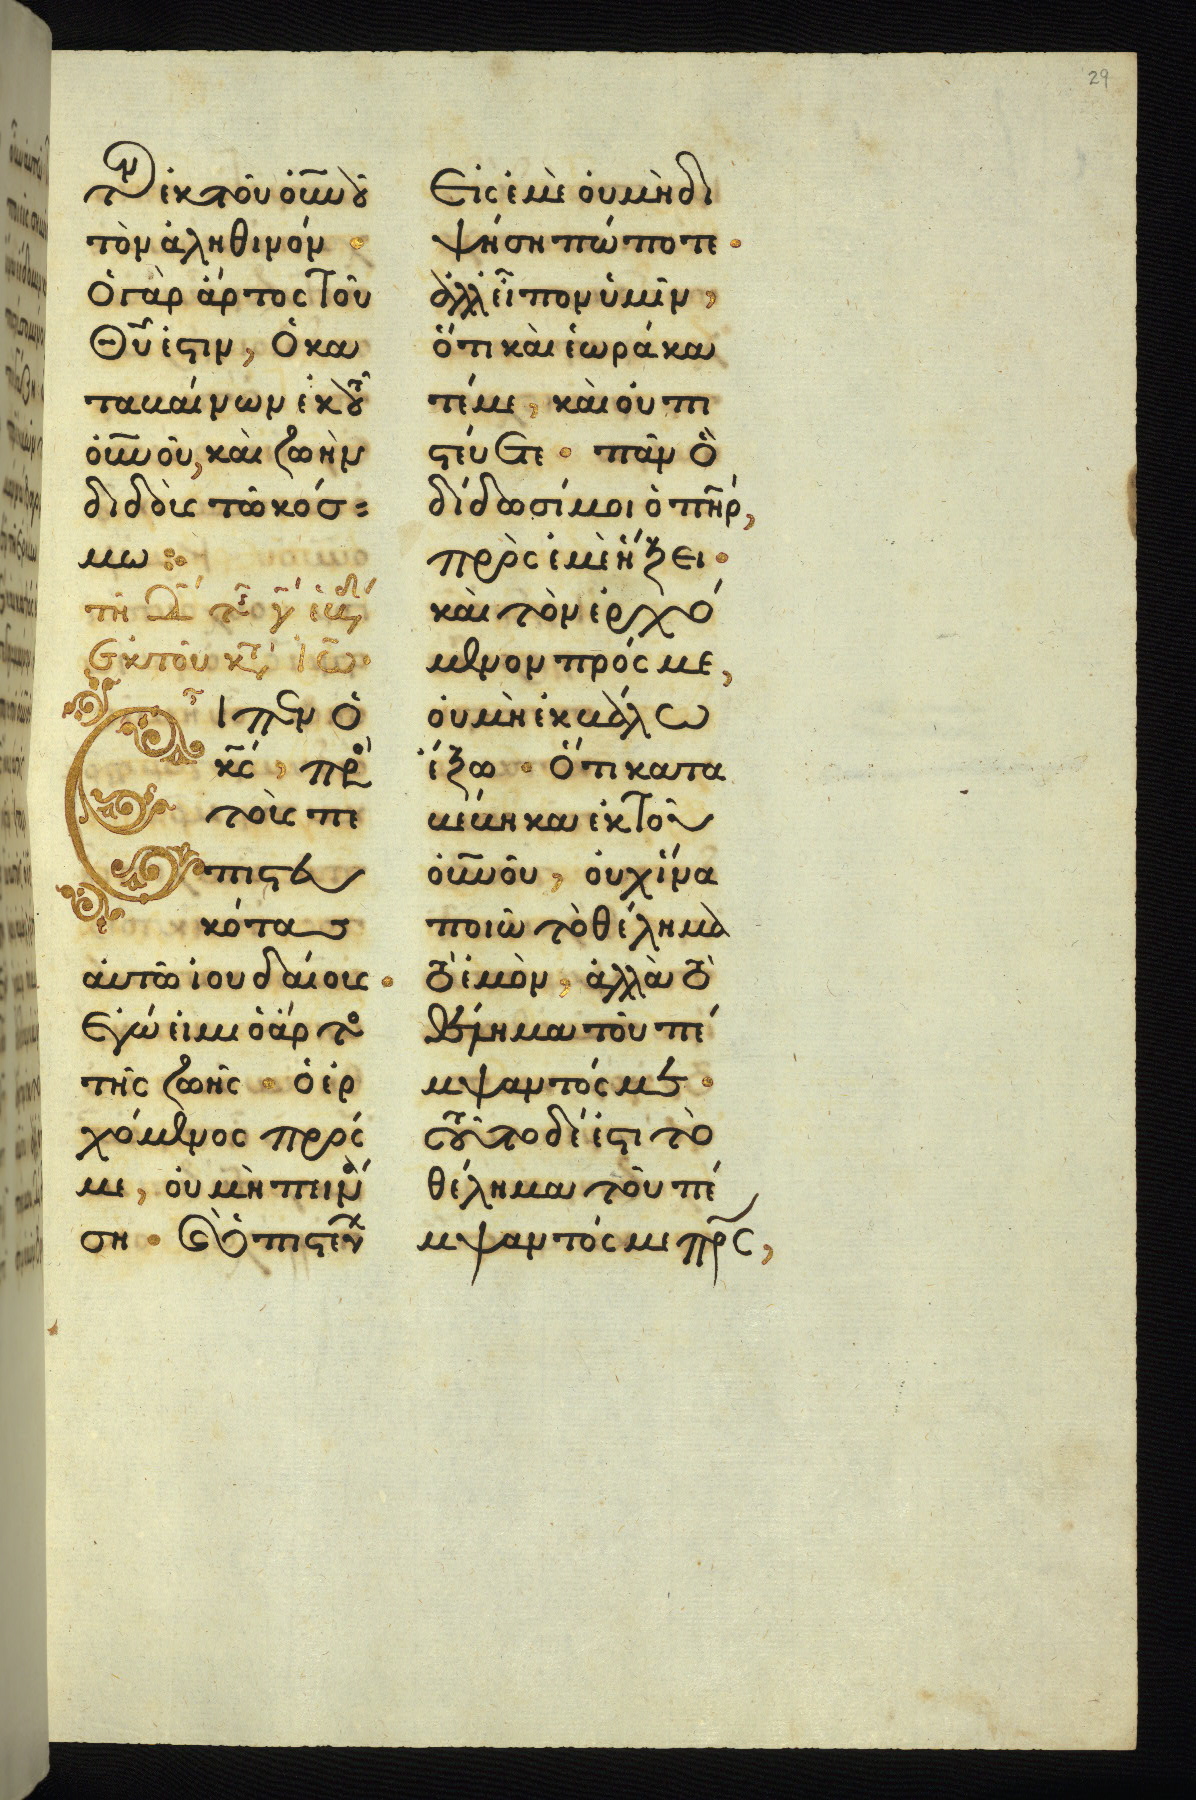 29
τον ἐκ τοῦ οὐ̅νου
τὸν ἀληθινόν ·
Ὁ γὰρ ἄρτος τοῦ
Θ̅υ ἐστιν, Ὁ κα
ταβαίνων ἐκ τοῦ
οὐ̅νοῦ, καὶ ζωὴν
διδοὺς τῶ κόσ=
μω :·
τῆ δ̅ τῆς γ̅ ἑβδ
Ἐκ τοῦ κτ Ἰω
Εἶπεν Ὁ
κ̅ς, πρὸς
τοὺς πε
πιστευ
κότας
αὐτῶ ἰουδαίους ·
Εγώ εἰμι ὁ ἄρτος
τῆς ζωῆς · ὁ ἐρ
χόμενος πρός
με, οὐ μὴ πεινά
ση · καὶ Ὁ πιστεύων
Εἰς ἐμὲ οὐ μὴ δι
ψήση πώποτε ·
ἀλλ εἶπον ὑμῖν,
ὅτι καὶ ἑωράκα
τέ με, καὶ οὐ πι
στεύετε · πᾶν Ὃ
δίδωσί μοι ὁ π̅ηρ,
πρὸς ἐμὲ ἥξει ·
καὶ τὸν ἐρχό
μενον πρός με,
οὐ μὴ ἐκβάλω
ἔξω · Ὅτι κατα
βέβηκα ἐκ τοῦ
οὐ̅νοῦ, οὐχ ἵνα
ποιῶ τὸ θέλημα
τὸ ἐμὸν, ἀλλὰ τὸ
θέλημα τοῦ πέ
μψαντός με ·
τοῦτο δέ ἐστι τὸ
θέλημα τοῦ πέ
μψαντός με π̅ρς,